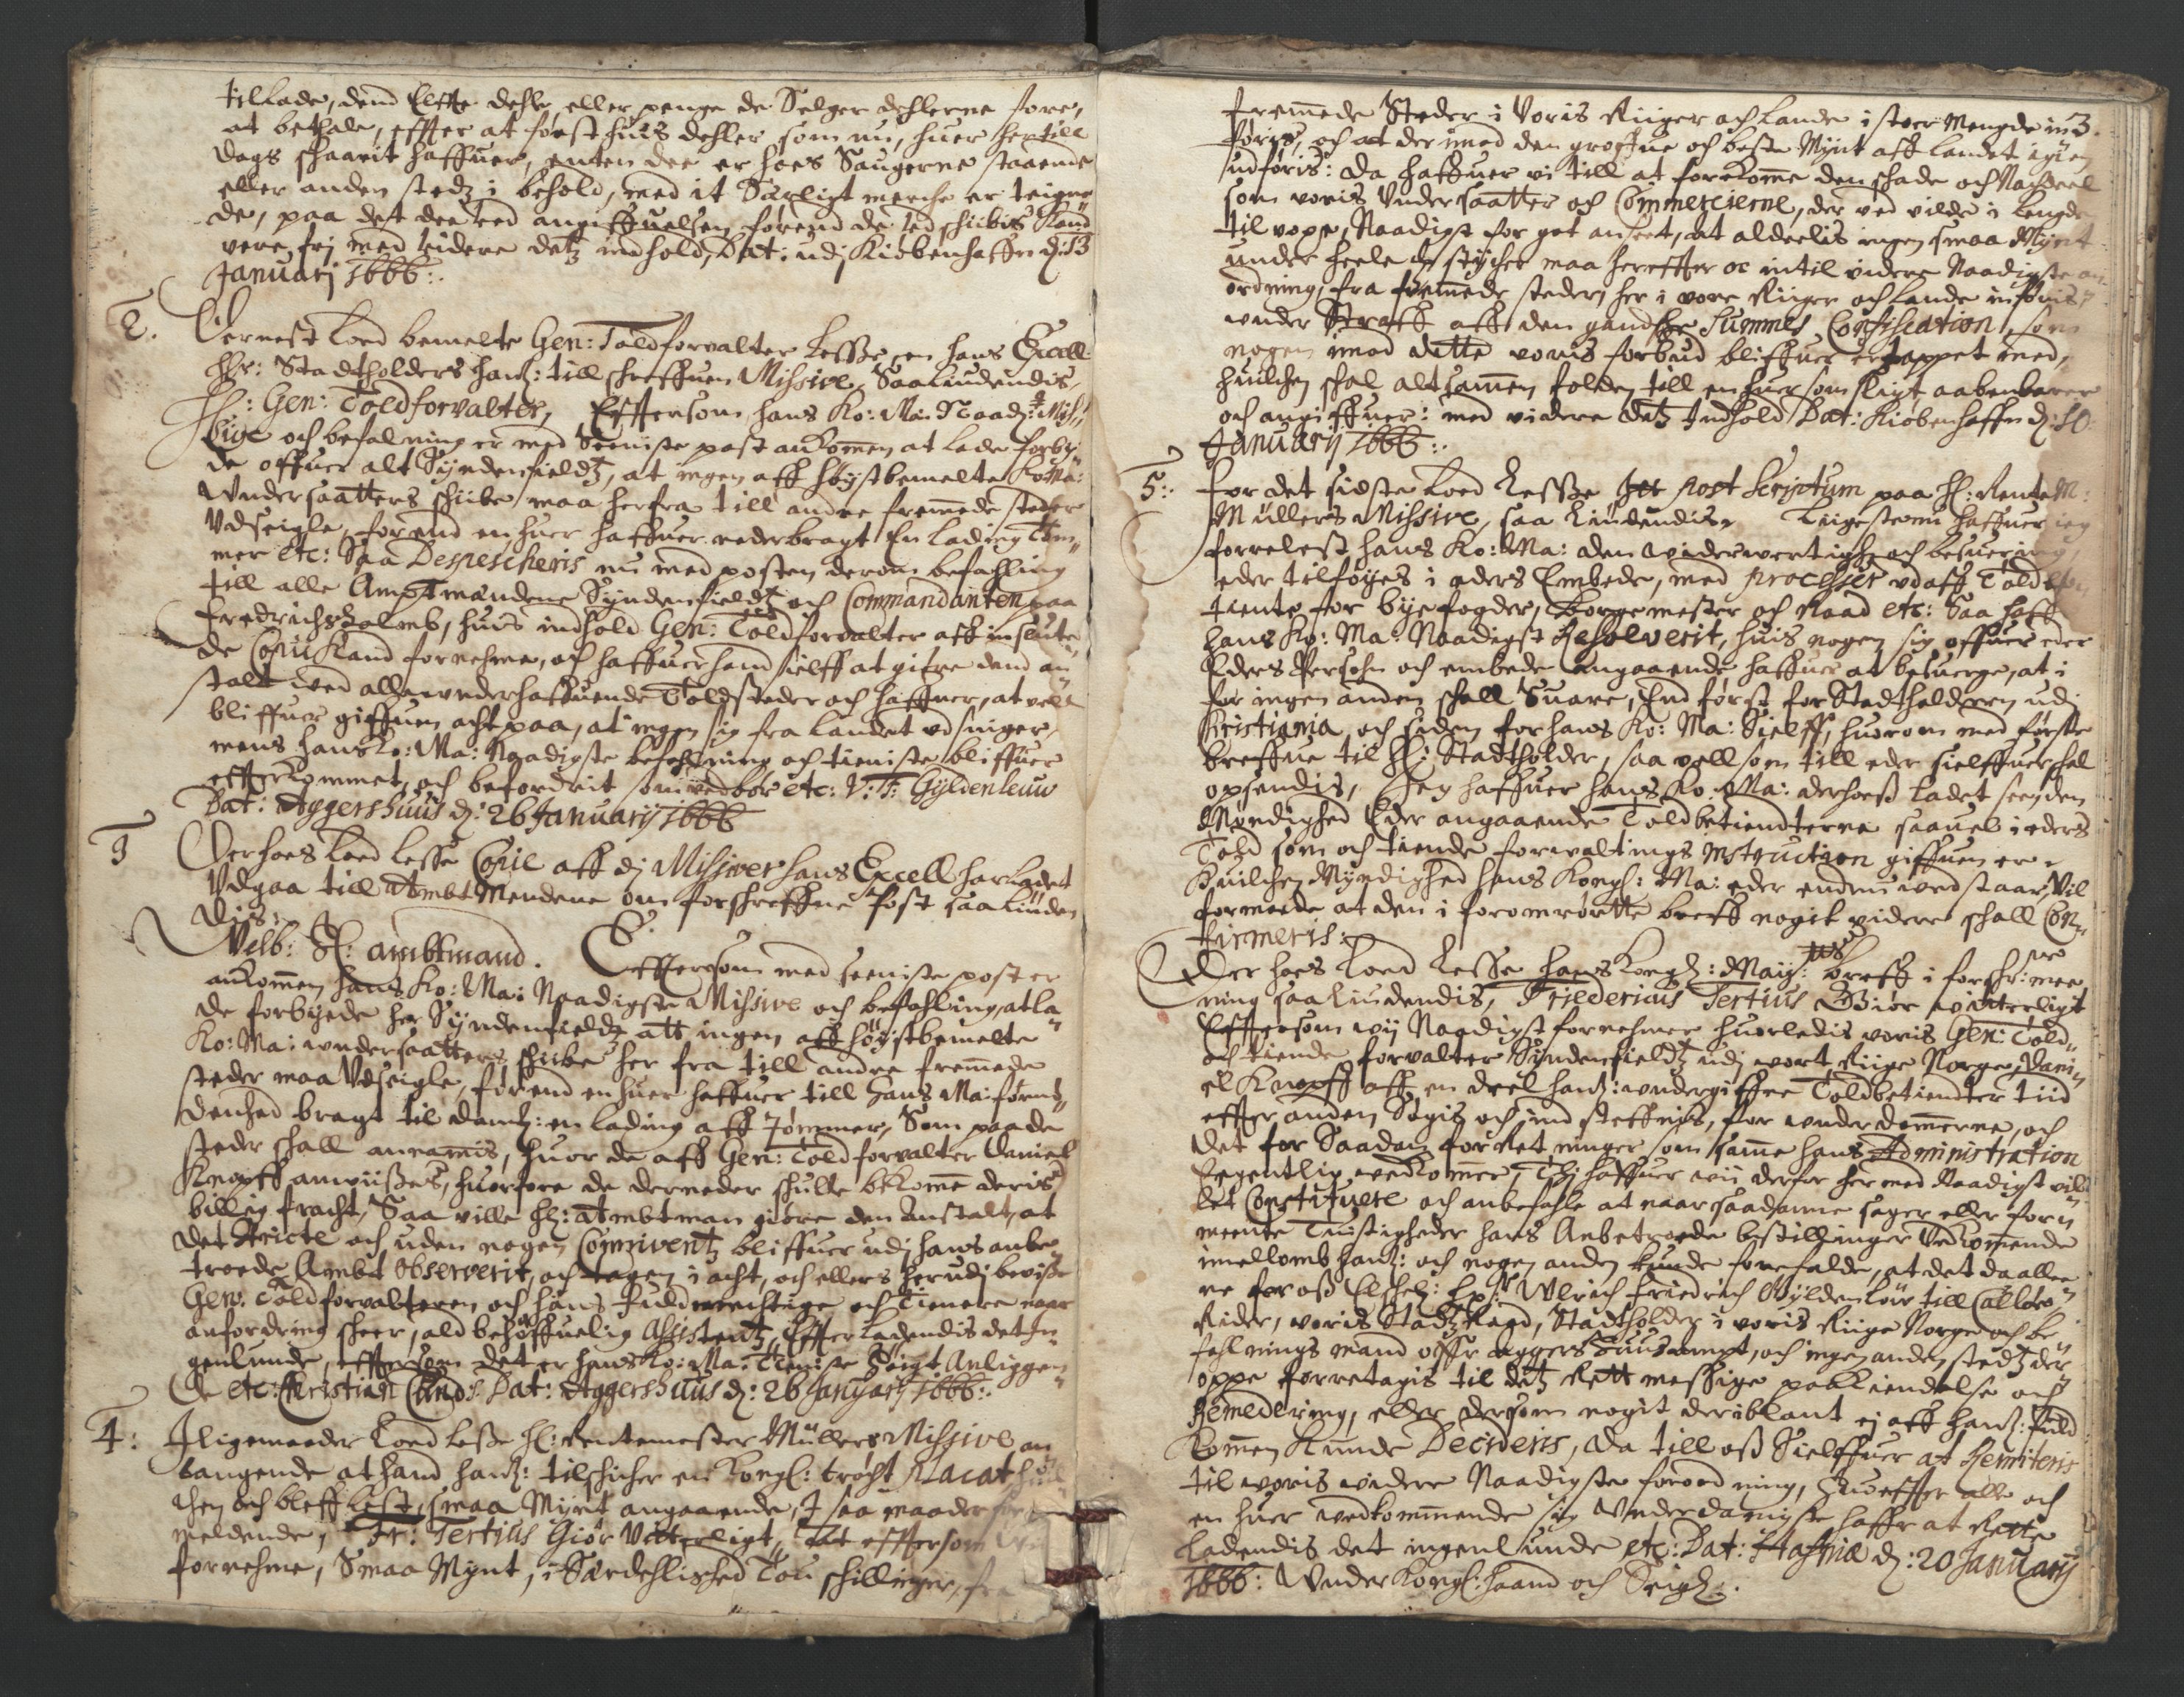 tillade, dend Elffte dehle eller penge de Selger dehlerne fore,
at bethale, effter at først huis dehler som nu, huer her till
dags schaarit haffuer, enten dee er hoes Saugerne staaende
eller anden stedz i behold, med it Særligt merche er teigne
de, paa det dee ved angiffuelsen førend de ved schibis Kand
vere fri med videre detz indhold, Dat: udj Kiøbenhaffn d: 13
Januarj 1666:.
2. Dernest Loed bemelte Gen: Toldforvalter Lesse en hans Excell:
Hr: Stadtholders hanß: till schreffuen Missive, Saaliudendis,
H: Gen: Toldforvalter, Efftersom hans Ko: Ma: Naadz: Mis„
sive och befalning er med Seeniste post ankommen at lade forby„
de offuer alt Syndenfieldz, at ingen aff høystbemelte Ko: Ma:
Undersaatters schibe maa herfra till andre fremmede steder
Udseigle, førend en huer haffuer nederbragt En lading Tøm„
mer etc: Saa Despescheris nu med posten derom befahling
till alle Amptmændene Syndenfieldz och Commandanten paa
Fredrichshalmb, huis indhold Gen: Toldforvalter aff inslute„
de Copie Kand fornehme, och haffuer hand sielff at giøre dend an„
stalt ved alle underhaffuende Toldsteder och haffner, at vell
bliffuer giffuen acht paa, at ingen sig fra Landet ud sniger,
mens hans Ko: Ma: Naadigste befahlning och tieniste bliffuer
effterkommet, och befordrit som vedbør etc: V: F: Gyldenleuw
Dat: Aggershuus d: 26 Januarij 1666
3 Derhoes Loed Lesse Copie aff dj Missiver hans Excell har Ladet
Udgaa till AmbtMendene om forschreffne post saa Liuden
dis:
Velb: H: ambtmand. Efftersom med seeniste post er
ankommen hans Ko: Ma: Naadigste Missive och befahling, at la„
de forbyede her Syndenfieldz att ingen aff høystbemelte
Ko: Ma: undersaatters schibe her fra till andre fremmede
steder maa Udseigle, førend en huer haffuer till hans Ma: fornø„
denhed bragt til danß: en lading aff Tømmer, Som paa de
steder schall annammis, huor de aff Gen: Toldforvalter Daniel
Knopff anviisses, huorfore de derneder schulle bekome deris
billig fracht, Saa ville H: Ambtman giøre den Anstalt, at
det stricte och uden nogen Conniventz bliffuer udj hans anbe„
troede Ambt observerit, och tagen i acht, och ellers herudj bevise
Gen: Toldforvalteren och hans fuldmechtige och Tienere naar
anfordring scheer, ald behøffuelig Assistentz, Effterladendis det in„
genlunde, efftersom det er hans Ko: Ma: Tieniste høigt Anliggen„
de etc: Christian Dat: Aggershuus d: 26 Januarj 1666:.
4: Iligemaader Loed Lesse H: Rentemester Müllers Missive an
langende at hand hanß: tilschicher en Kongl: trøcht placat
chen och bleff Lest, smaa Mynt angaaende, I saa maader for
meldende, Fr: Tertius Giør Vitterligt, at efftersom Vi
fornehme, Smaa Mynt, i Særdehlished Tou schillinger, fra
3.
fremmede Steder i Voris Riiger och Lande i stoer Mengde ind
føris, och at der imod den groffue och beste Mynt aff Landet igien
udføris: da haffuer vi till at forekomme den schade och Nachdeel
som voris Undersaatter och Commercierne, der ved vilde i Lengden
til voxe, Naadigst for got anseet, at aldeelis ingen smaa Mynt
under heele stycher maa hereffter oc intil videre Naadigste an
ordning, fra fremmede steder, her i vore Riiger och Lande indføris,
under Straff aff den gandsche Summes Confiscation, som
nogen imod dette voris forbud bliffuer ertappet med,
huilchen schal altsammen folden till en huer som sligt aabenbarer
och angiffuer: med videre detz Indhold Dat: Kiøbenhaffn d: 10
Januarij 1666:.
5: For det sidste Loed Lesse post Scriptum paa H: Rente M:
Müllers Missive, saa Liudendis, Liigesom nu haffuer ieg
forrelest hans Ko: Ma: den widerwertighed och besuering,
eder tilføyes i eders Embede, med processer udaff Toldbe
tiente for byefogder, borgemester och Raad etc: Saa haff
hans Ko: Ma: Naadigst Resolverit, huis nogen sig offuer eder
Eders Persohn och embede angaaende haffuer at besuerge, at i
for ingen anden schall Suare, End først for Stadtholderen udj
Kristiania, och siden for hans Ko: Ma: Sielff, huorom med første
breffue til H: Stadtholder, saa vell som till eder sielffuer schal
opsendis, Jeg haffuer hans Ko: Ma: derhoes ladet seeg den
Myndighed Eder angaaende Toldbetiendterne saavel i eders
Told som och tiende forvaltings Instruction giffuen er,
Huilchen Myndighed hans Kongl: Ma: eder endnu ved staar, Vil
formode at den i foromrørtte breff nogit videre schall Con„
firmeris:
Der hoes Loed Lesse hans Kongl: Mays: breff i forschr: mee
ning saa liudendis, Friedericus Tertius Giør witterligt
Efftersom wij Naadigst fornehmer huorledis voris Gen: Told„
och tiende forvalter Syndenfieldz udj vort Riige Norge, Dani
el Knopff aff en deel hanß: undergiffne Toldbetiendter tiid
effter anden Søgis och ind steffnis, for underdommerne, och
det for Saadan forretninger, som samme hans Administration
Eegentlig vedkommer, Thj haffuer vii derfor hermed Naadigst vil
let Constituere och anbefahle at naar saadanne sager eller forn
meente Tuistigheder hans Anbetroede bestillinger Vedkommende
imellomb hanß: och nogen anden kunde forefalde, at det da alleene
for oss Elschel: Hr: Ulrich Friedrich Gyldenløw till Calløe,
Rider, voris Statz Raad, Stadtholder i voris Riige Norge och be„
fahlningsmand offr Aggershuus ampt, och ingen anden stedz der
oppe forretagis til ditz Rettmessige paakiendelse och
Remedering, eller dersom nogit deriblant ej aff hanß: fuld
kommen Kunde Decideris, da till oss Sielffuer at Remiteris
til voris widere Naadigste forordning, Hueffter alle och
en huer vedkommende sig Underdanigste haffr at Rette
Ladendis det ingenlunde etc: Dat: Haffniæ d: 20 Januarij
1666: Under Kongl: haand och Seigl:.